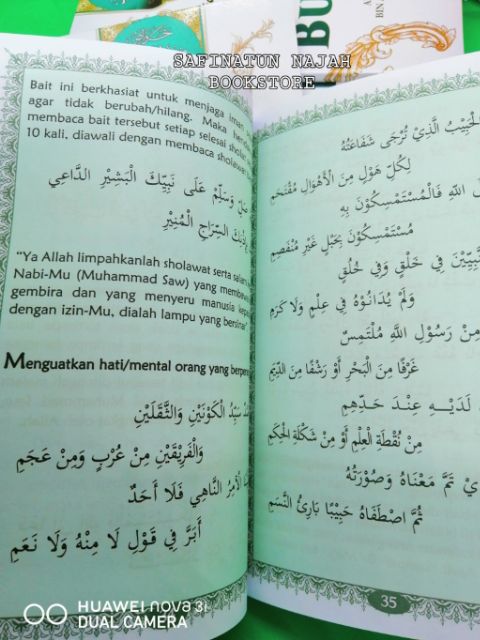 SAFINATUN NAJAH
BOOKSTORE
BU
Bait ini berkhasiat untuk menjaga iman
agar tidak berubah/hilang. Maka
membaca bait tersebut setiap selesai
10 kali, diawali dengan membaca
صَلِّ وَسَلِّمْ عَلَى نَبِيِّكَ الْبَشِيْرِ الدَّاعِي
السِّرَاجِ الْمُنِيْرِ
"Ya Allah limpahkanlah sholawat serta
Nabi-Mu (Muhammad Saw) yang
gembira dan yang menyeru manusia
dengan izin-Mu, dialah lampu yang
Menguatkan hati/mental orang yang
سَيِّدُ الْكَوْنَيْنِ وَالثَّقَلَيْنِ
وَالْفَرِيْقَيْنِ مِنْ عُرْبٍ وَمِنْ عَجَمِ
الْأَمِرُ النَّاهِي فَلَا أَحَدٌ
أَبَرَّ فِي قَوْلِ لَا مِنْهُ وَلَا نَعَمِ
الْحَبِيْبُ الَّذِيْ تُرْجَى شَفَاعَتُهُ
لِكُلِّ هَوْلٍ مِنَ الْأَهْوَالِ مُقْتَحَمِ
اللهِ فَالْمُسْتَمْسِكُوْنَ بِهِ
مُسْتَمْسِكُوْنَ بِحَبْلٍ غَيْرِ مُنْفَصِمِ
فِي خَلْقٍ وَفِي خُلُقٍ
وَلَمْ يُدَانُوْهُ فِي عِلْمٍ وَلَا كَرَمِ
مِنْ رَسُوْلِ اللهِ مُلْتَمِسٌ
غَرْفًا مِنَ الْبَحْرِ أَوْ رَشْفًا مِنَ الدِّيَمِ
لَدَيْهِ عِنْدَ حَدِّهِمِ
مِنْ نُقْطَةِ الْعِلْمِ أَوْ مِنْ شَكْلَةِ الْحِكَمِ
تَمَّ مَعْنَاهُ وَصُوْرَتُهُ
ثُمَّ اصْطَفَاهُ حَبِيْبًا بَارِئُ النَّسَمِ
35
HUAWEI nova 3i
DUAL CAMERA